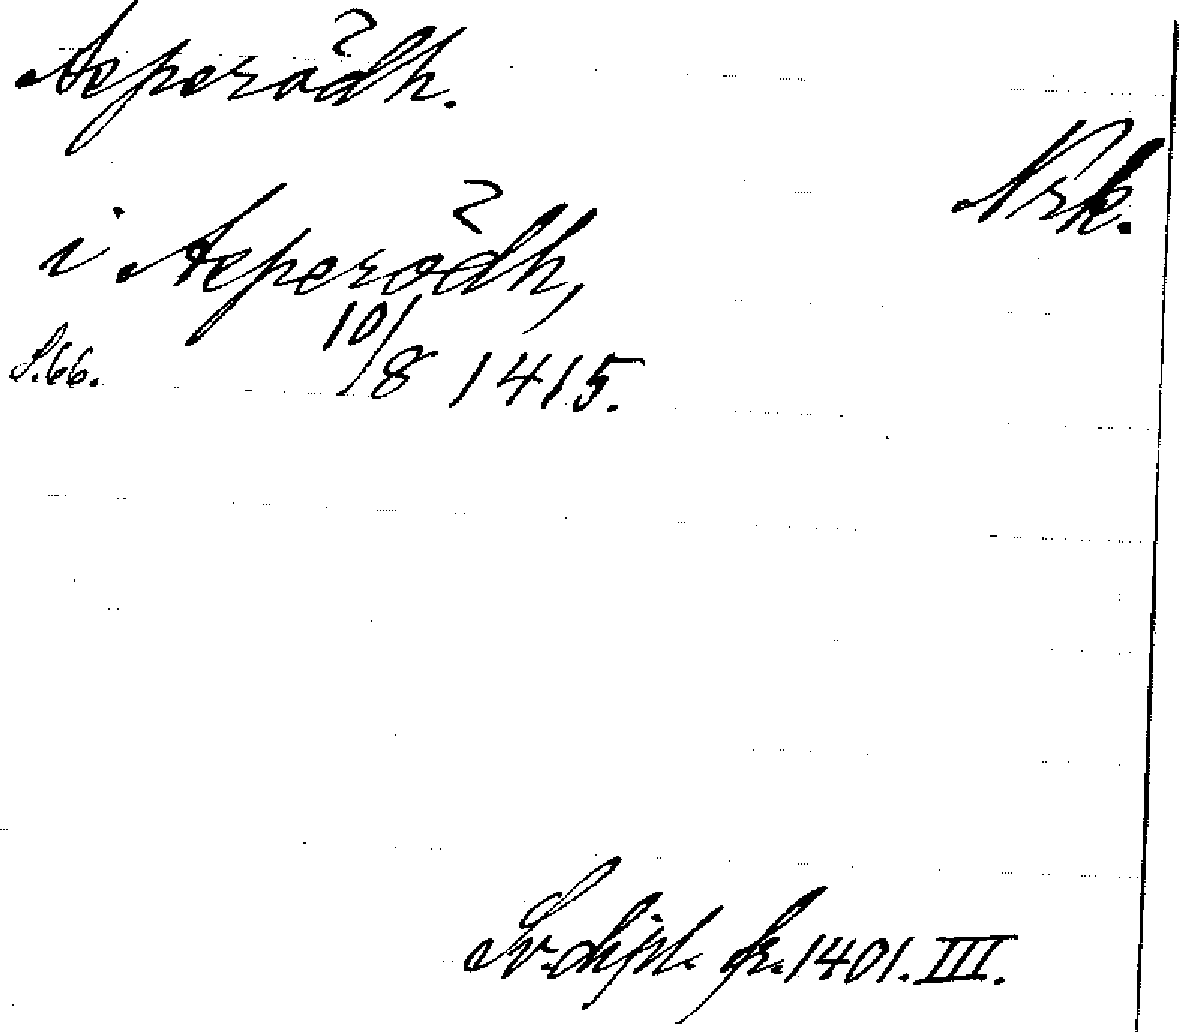 Aeperådh.
Nrk.
i Aeperödh,
S.66. 10/8 1415.
Sv. dipl. fr. 1401. III.